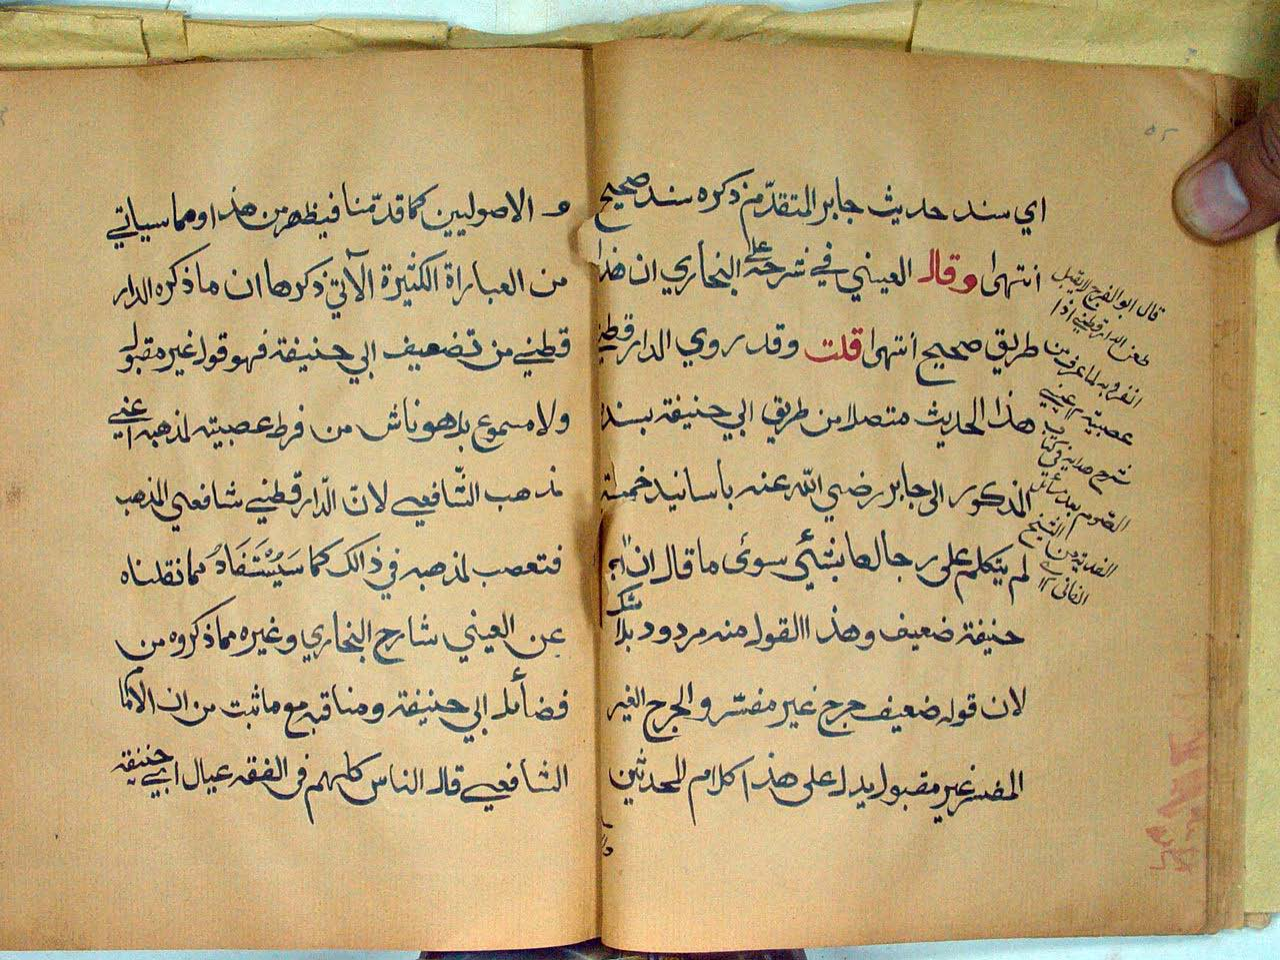 ٥٢
اي سند حديث جابر المتقدّم ذكره سند صحيح
انتهى وقال العيني في شرحه على البخاري ان هذا
طريق صحيح انتهى قلت وقد روي الدار قطني
هذا الحديث متصلا من طريق ابي حنيفة بسنده
المذكور الى جابر رضي الله عنه باسانيد خمسة
لم يتكلم على رجالها بشئي سوى ما قال ان ابا
حنيفة ضعيف وهذا القول منه مردود بلا شك
لان قوله ضعيف جرح غير مفسّر والجرح الغير
المفسر غير مقبول يدل على هذا كلام المحدثين
قال ابو الفرج لا يقبل
طعن الدار قطني اذا
انفرد به لما عرف من
عصبيته
شرح هداية في كتاب
الصوم بعد مسائل
الفدية من الشيخ
الفاني ١٢
و الاصوليين كما قدّمنا فيظهر من هذا ومما سياتي
من العباراة الكثيرة الآتي ذكرها ان ما ذكره الدار
قطني من تضعيف ابي حنيفة فهو قول غير مقبول
ولا مسموع بل هو ناش من فرط عصبيته لمذهبه اعني
مذهب الشّافعي لانّ الدّار قطني شافعي المذهب
فتعصب لمذهبه في ذالك كما سَيُسْتَفَادُ مما نقلناه
عن العيني شارح البخاري وغيره مما ذكروه من
فضائل ابي حنيفة ومناقبه مع ما ثبت من ان الاما
الشافعي قال الناس كلهم في الفقه عيال ابي حنيفة